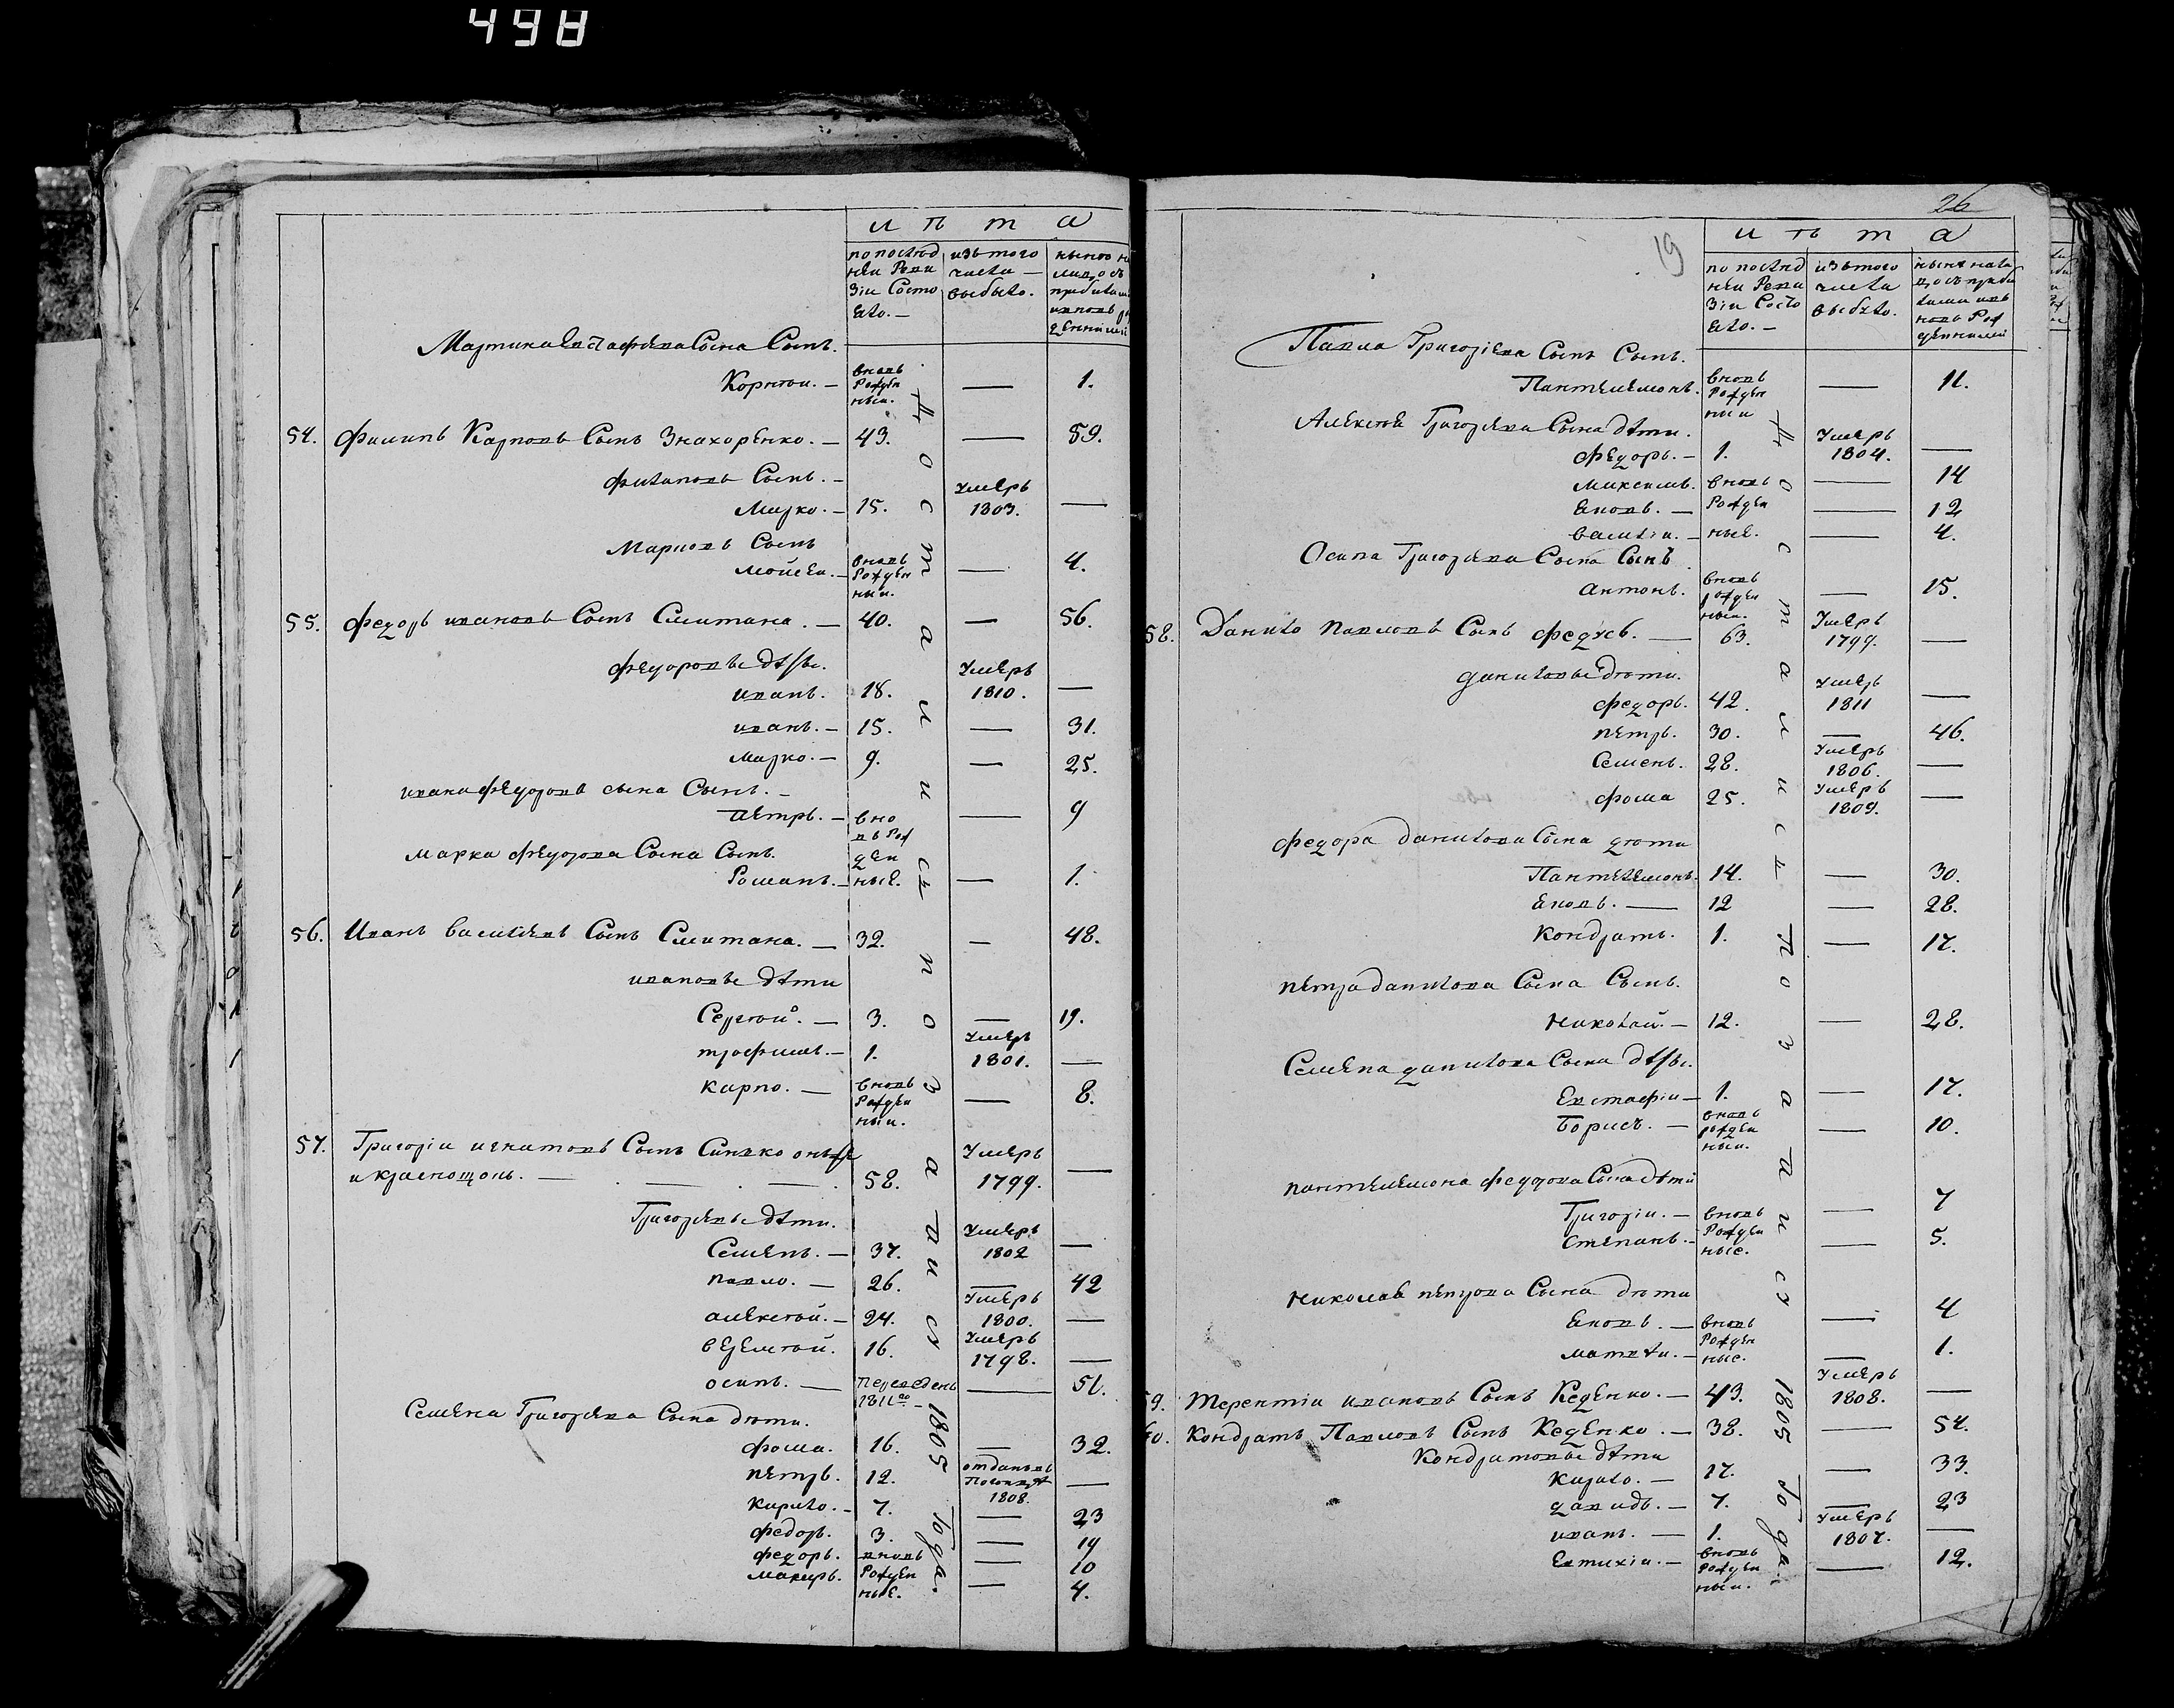 498
лѣта
по послѣд
ней Реви
зіи Состо
яло. —
изъ того
числа —
выбыло.
Мартина Евстафіева Сына Сынъ.
Корнѣи. — вновь Рожден ныи. — 1.
54. Филипъ Карповъ Сынъ Знахоренко. — 43. — 59.
Филиповъ Сынъ. —
Марко. — 15. Умеръ 1803. —
Марковъ Сынъ
Мойсеи. — вновь Рожден ныи. — 4.
55. Федоръ ивановъ Сынъ Смитана. — 40. — 56.
Федоровы дѣти.
иванъ. 18. Умеръ 1810. —
иванъ. — 15. — 31.
Марко. — 9. — 25.
ивана Федорова сына Сынъ. —
Петръ. — вно — 9
Марка Федорова Сына Сынъ.
Романъ. — въ Рож ден ные. — 1.
56. Иванъ Василіевъ Сынъ Смитана. — 32. — 48.
ивановы дѣти
Сергѣй. — 3. — 19.
трофимъ. — 1. Умеръ 1801. —
карпо. — вновь Рожден ныи. — 8.
57. Григоріи игнатовъ Сынъ Синко онъже
и краснощокъ. — 58. Умеръ 1799. —
Григоріевы дѣти.
Семенъ. — 37. Умеръ 1802 —
павло. — 26. — 42
алексѣй. — 24. Умеръ 1800. —
16. Умеръ 1798. —
осипъ. — переведенъ 1811го — 51.
Семена Григоріева Сына дѣти.
Фома. 16. — 32.
петръ. 12. отданъ въ 1808. —
кирило. — 7. — 23
федоръ. 3. — 19
федоръ. вновь — 10
макаръ. Рожден ные. — 4.
достались по записѣ 1805 Года.
26
19
лѣта
по послѣд
ней Реви
зіи Состо
яло. —
изъ того
числа
выбыло.
Павла Григоріева Сынъ Сынъ.
Пантелемонъ. вновь Рожден ныи — 11.
Алексѣя Григоріева Сына дѣти.
Федоръ. — 1. Умеръ 1804. —
Максимъ. вновь — 14
Яковъ. — Рожден — 12
Василіи. — ные. — 4.
Осипа Григоріева Сына Сынъ
антонъ. вновь рожден ныи. — 15.
58. Данило Павловъ Сынъ — 63. Умеръ 1799. —
даниловы дѣти.
федоръ. 42. Умеръ 1811 —
петръ. 30. — 46.
Семенъ. 28. Умеръ 1806. —
фома 25. Умеръ 1809. —
федора данилова Сына дѣти
Пантелемонъ. 14. — 30.
Яковъ. — 12 — 28.
кондратъ. 1. — 17.
петра данилова Сына Сынъ.
николай. — 12. — 28.
Семена данилова Сына дѣти.
Евстафіи — 1. — 17.
Борисъ. — вновь рожден ныи. — 10.
пантелемона федорова Сына дѣти
Григоріи. — вновь — 7
Степанъ. — Рожден ные. — 5.
николая петрова Сына дѣти
Яковъ. — вновь — 4
матвѣи. — Рожден ные. — 1.
59. терентіи ивановъ Сынъ Кеденко. — 43. Умеръ 1808. —
60. кондратъ Павловъ Сынъ Кеденко. — 38. — 54.
Кондратовы дѣти
кирило. — 17. — 33.
давидъ. — 7. — 23
иванъ. — 1. Умеръ 1807. —
Евтихіи. — вновь Рожден ныи. — 12.
достались по записѣ 1805 Года.